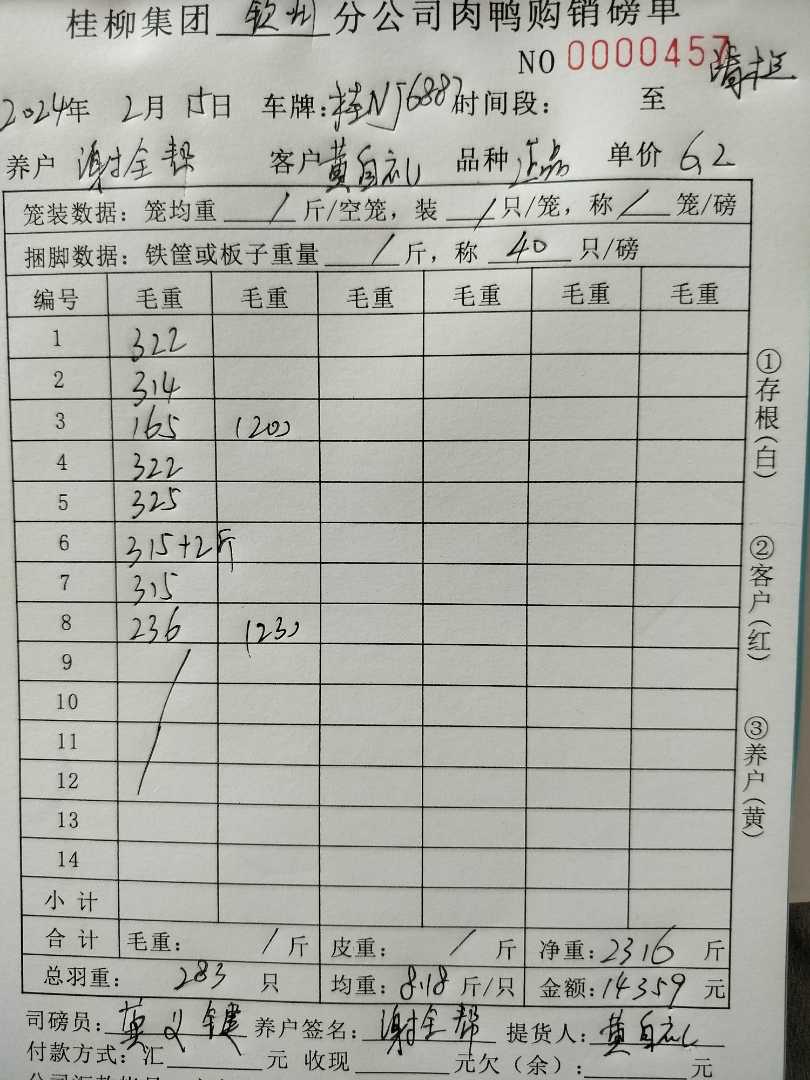 桂柳集团 钦州 分公司肉鸭购销磅单
NO 0000457
2024年 2月 15日 车牌:桂NJ6887 时间段: 至
养户 谢全帮 客户 黄自礼 品种 正品 单价 6.2
笼装数据: 笼均重 / 斤/空笼, 装 / 只/笼, 称 / 笼/磅
捆脚数据: 铁筐或板子重量 / 斤, 称 40 只/磅
编号 毛重 毛重 毛重 毛重 毛重 毛重
1 322
2 314
3 165 (20)
4 322
5 325
6 315+2斤
7 315
8 236 (23)
9
10
11
12
13
14
小计
合计 毛重: / 斤 皮重: / 斤 净重: 2316 斤
总羽重: 283 只 均重: 8.18 斤/只 金额: 14359 元
司磅员: 黄义健 养户签名: 谢全帮 提货人: 黄自礼
付款方式: 汇 元 收现 元欠(余): 元
①存根(白)
②客户(红)
③养户(黄)